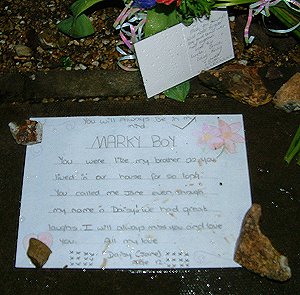 You will always be in my
mind
MARKY BOY
You were like my brother as you
lived in our house for so long.
You called me Jane even though
my name is Daisy. We had great
laughs. I will always miss you and love
you. All my love
Daisy (Jane)